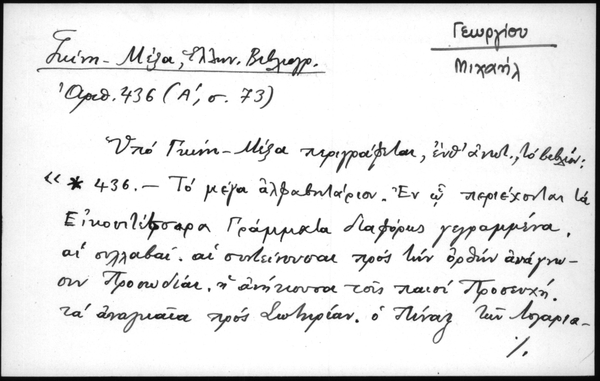 Γεωργίου
Μιχαήλ
Γκίνη - Μέξα, Ἑλλην. Βιβλιογρ.
Ἀριθ. 436 (Α', σ. 73)
Ὑπό Γκίνη - Μέξα περιγράφεται, ἐνθ' ἀνωτ., τό βιβλίον:
« * 436. — Τό μέγα ἀλφαβητάριον. Ἐν ᾧ περιέχονται τά
Εἰκοσιτέσσαρα Γράμματα διαφόρως γεγραμμένα,
αἱ συλλαβαί. αἱ συντείνουσαι πρός τήν ὀρθήν ἀνάγνω-
σιν Προσωδίαι. ἡ ἀνήκουσα τοῖς παισί Προσευχή.
τά ἀναγκαῖα πρός Σωτηρίαν. ὁ Πίναξ τῶν Λογαρια-
·/.